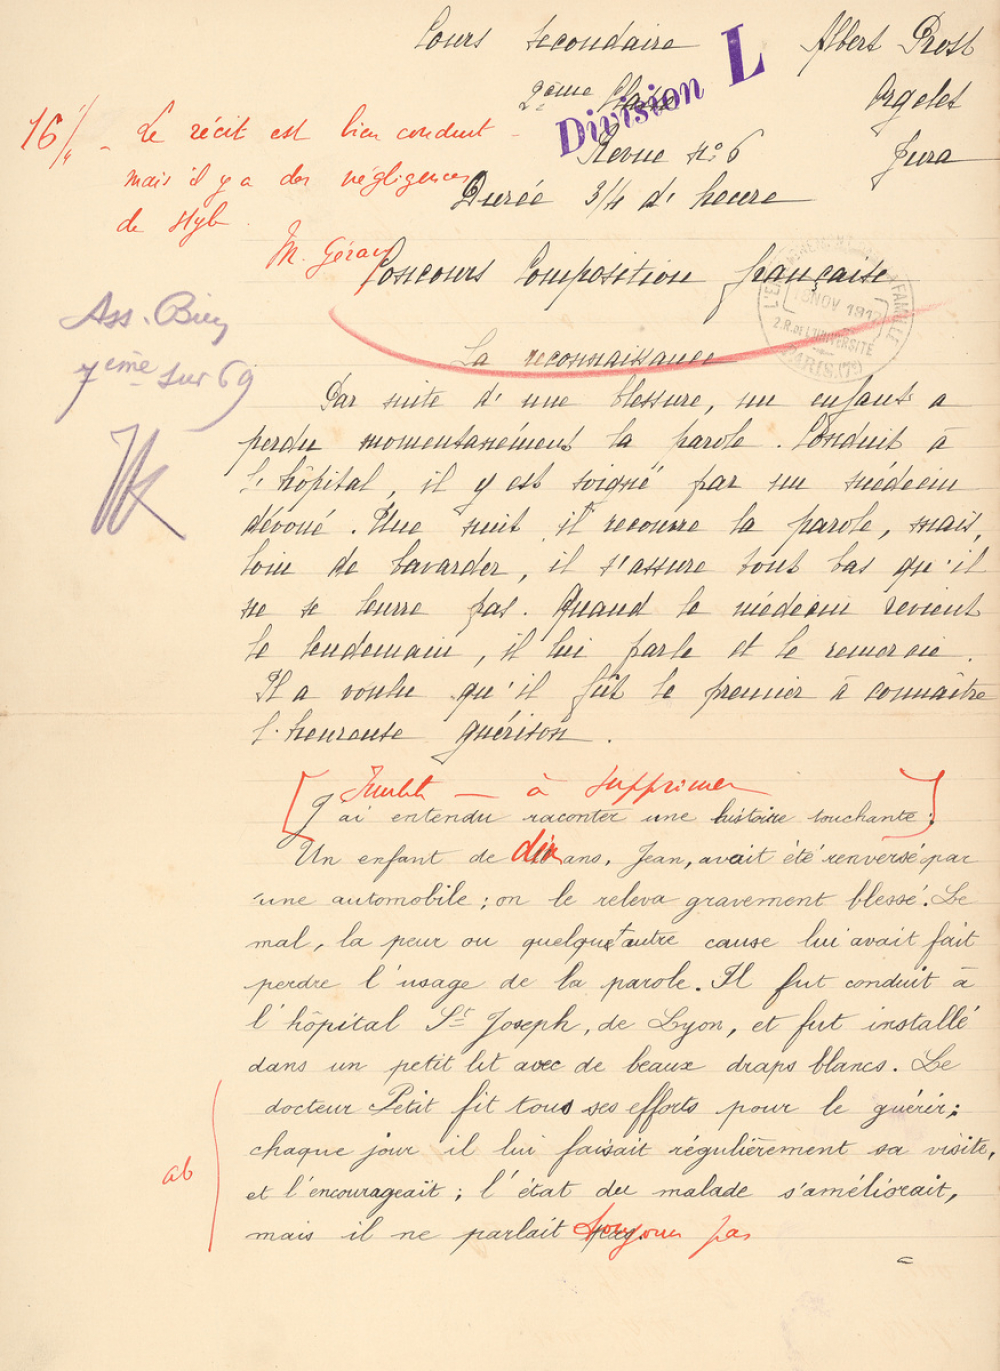 Cours secondaire Albert Prost
2ème Classe Orgelet
Division L
Revue n° 6 Jura
Durée 3/4 d'heure
16/ - Le récit est bien conduit -
mais il y a des négligences
de style.
M. Géray
Concours Composition française
L'E FAMILLE
NOV 1912
2.R.DE L'UNIVERSITÉ
PARIS.(7e)
La reconnaissance
Ass. Bien
7ème sur 69
Par suite d'une blessure, un enfant a
perdu momentanément la parole. Conduit à
l'hôpital, il y est soigné par un médecin
dévoué. Une nuit il recouvre la parole, mais,
loin de bavarder, il s'assure tout bas qu'il
ne se leurre pas. Quand le médecin revient
le lendemain, il lui parle et le remercie.
Il a voulu qu'il fût le premier à connaître
l'heureuse guérison.
Inutile — à supprimer
J'ai entendu raconter une histoire touchante:
Un enfant de dix ans, Jean, avait été renversé par
une automobile; on le releva gravement blessé. Le
mal, la peur ou quelqu'autre cause lui avait fait
perdre l'usage de la parole. Il fut conduit à
l'hôpital St Joseph, de Lyon, et fut installé
dans un petit lit avec de beaux draps blancs. Le
docteur Petit fit tous ses efforts pour le guérir;
chaque jour il lui faisait régulièrement sa visite,
ab
et l'encourageait; l'état du malade s'améliorait,
mais il ne parlait pas. toujours pas